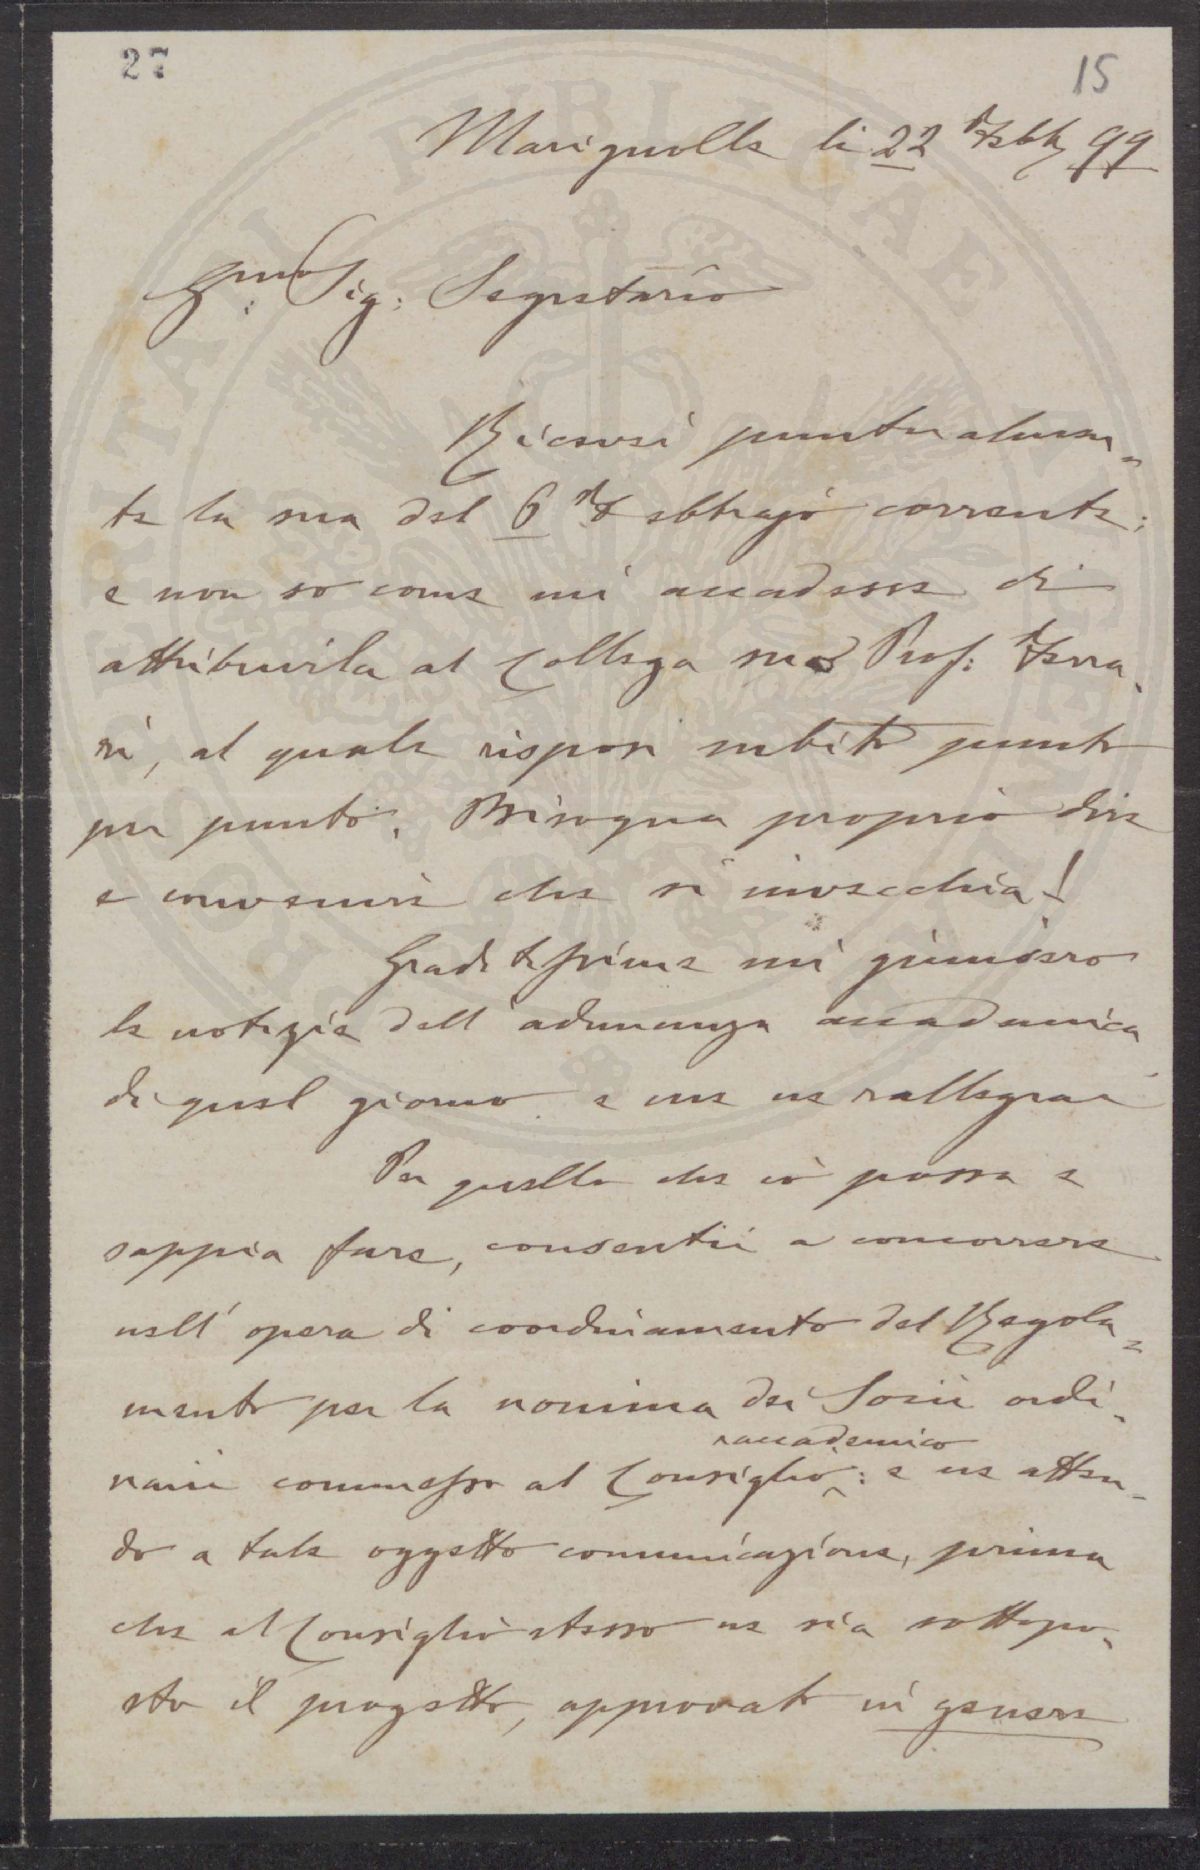 27
15
Marignolle li 22 Febb 99
Sig: Segretario
Ricevei puntualmen=
te la sua del 6 Febbrajo corrente;
e non so come mi accadesse di
attribuirla al Collega suo Prof: Ferra-
ri, al quale risposi subito punto
per punto. Bisogna proprio dire
e convenire che si invecchia!
Graditissime mi giunsero
le notizie dell'adunanza accademica
di quel giorno e me ne rallegrai
Per quello che io possa e
sappia fare, consentii a concorrere
nell'opera di coordinamento del Regola=
mento per la nomina dei Socii ordi-
accademico
narii commesso al Consiglio: e ne atten-
do a tale oggetto comunicazione, prima
che al Consiglio stesso ne sia sottopo-
sto il progetto, approvato in genere